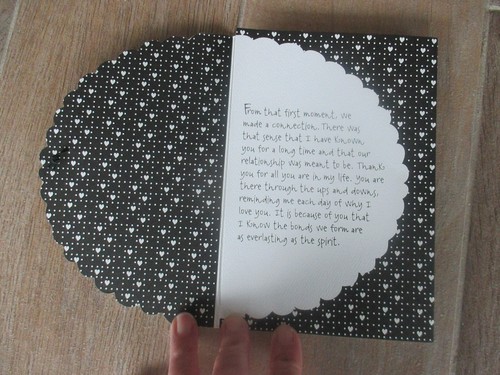 From that first moment, we
made a connection. There was
that sense that I have known
you for a long time and that our
relationship was meant to be. Thank
you for all you are in my life. You are
there through the ups and downs,
reminding me each day of why I
love you. It is because of you that
I know the bonds we form are
as everlasting as the spirit.